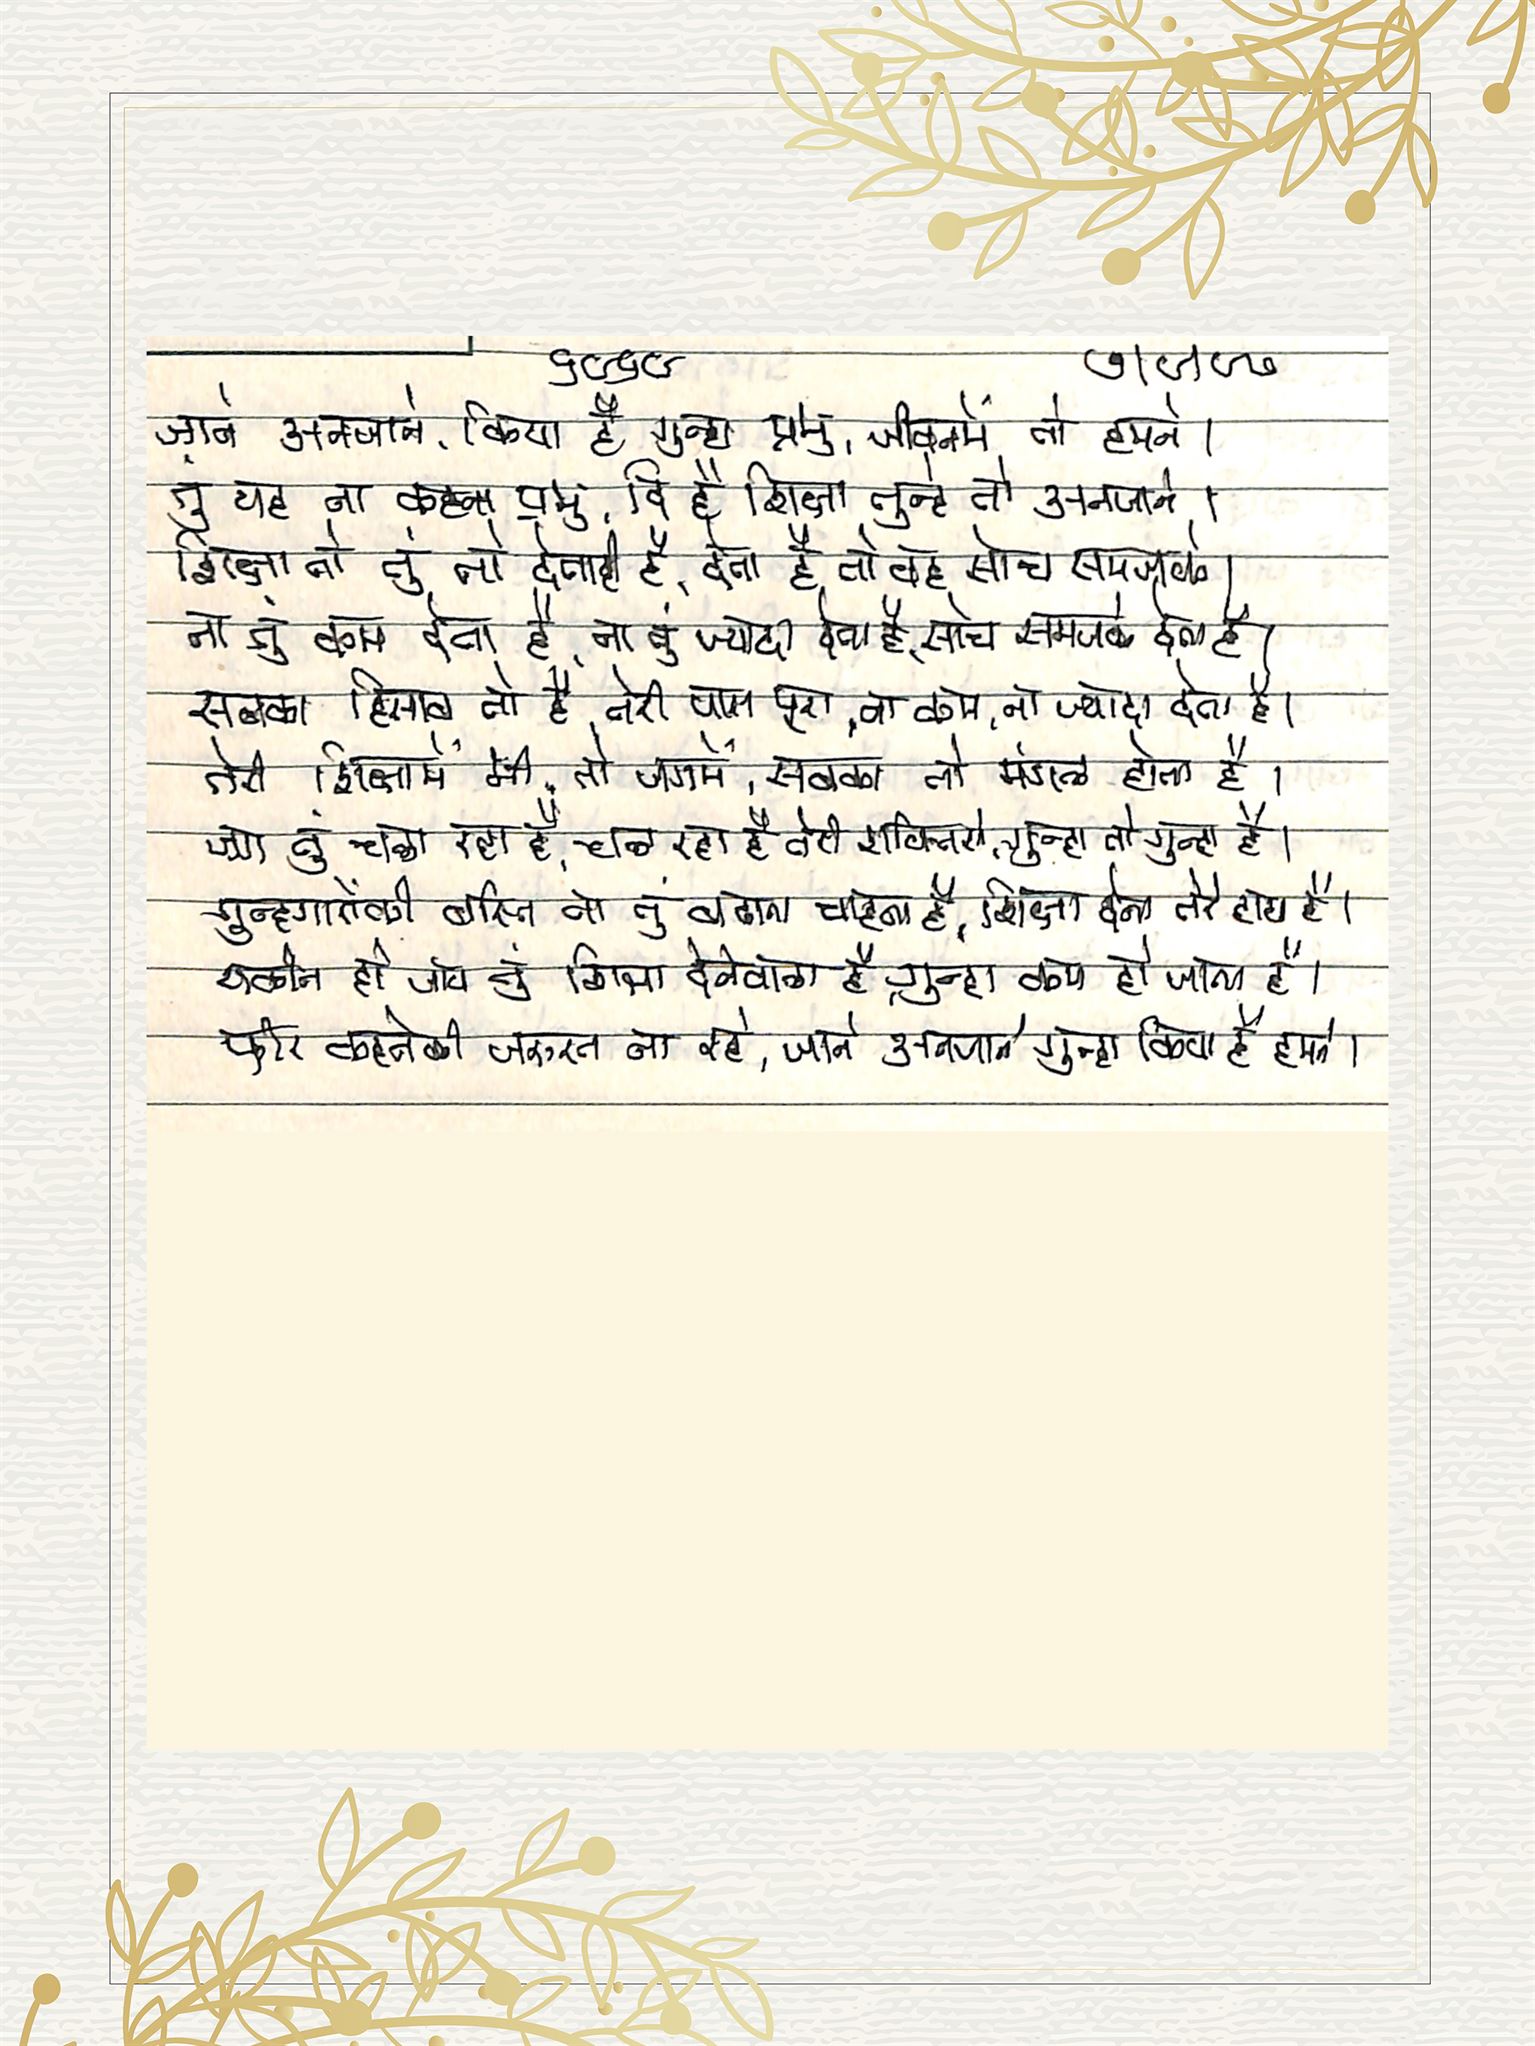 जाने अनजाने, किया है गुन्हा प्रभु, जीवनमें तो हमने।
तुं यह ना कहना प्रभु, दि है शिक्षा तुन्हे तो अनजाने।
शिक्षा तो तुं तो देताही है, देता है तो वह सोच समजके।
ना तुं कम देता है, ना तुं ज्यादा देता है, सोच समजके देता है।
सबका हिसाब तो है, तेरी पास पूरा, ना कम, ना ज्यादा देता है।
तेरी शिक्षामें भी, तो जगमें, सबका तो मंगल होता है।
जग तुं चला रहा है, चल रहा है तेरी शक्तिसे, गुन्हा तो गुन्हा है।
गुन्हगारोंकी बस्ति ना तुं बढाना चाहता है, शिक्षा देना तेरे हाथ है।
यकीन हो जाय तुं शिक्षा देनेवाला है, गुन्हा कम हो जाता है।
फीर कहनेकी जरुरत ना रहे, जाने अनजाने गुन्हा किया है हमने।